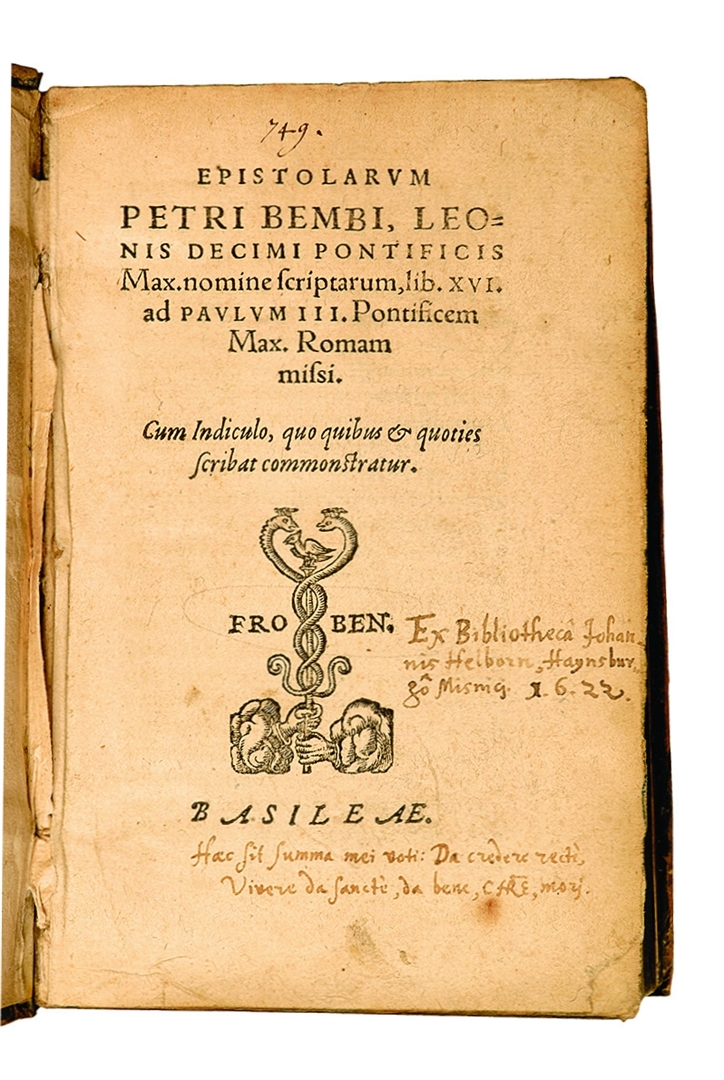 749.
EPISTOLARVM
PETRI BEMBI, LEO=
NIS DECIMI PONTIFICIS
Max.nomine ſcriptarum,lib. XVI.
ad PAVLVM III. Pontificem
Max. Romam
miſsi.
Cum Indiculo, quo quibus & quoties
ſcribat commonſtratur.
FRO BEN.
Ex Bibliothecâ Johan
nis Helborn, Haynsbur
gô Misnię. 1.6.22.
BASILEAE.
Hæc sit summa mei voti: Da credere rectè,
Vivere da sanctè, da bene, CHRE, mori.